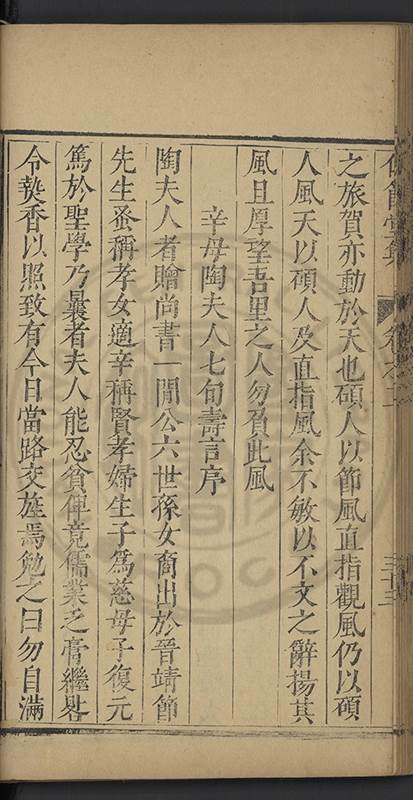 之旅賀亦動於天也碩人以節風直指觀風仍以碩
人風天以碩人及直指風余不敏以不文之辭揚其
風且厚望吾里之人勿負此風
辛母陶夫人七旬壽言序
陶夫人者贈尚書一閒公六世孫女裔出於晉靖節
先生蚤稱孝女適辛稱賢孝婦生子為慈母子復元
篤於聖學乃曩者夫人能忍貧俾竟儒業乏膏繼晷
令爇香以照致有今日當路交旌焉勉之曰勿自滿